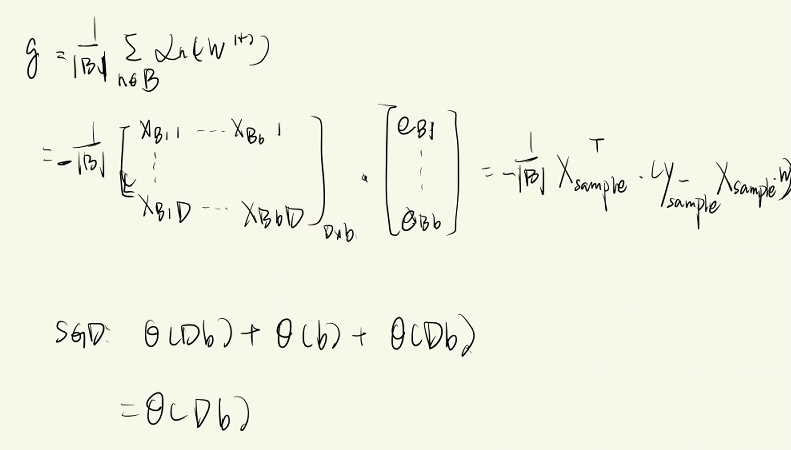 g = 1/|B| Σ_{n∈B} ∇Ln(w^{(t)})
= -1/|B| [ x_{B11} ---- x_{Bb1} ⋮ x_{B1D} --- x_{BbD} ]_{D×b} · [ e_{B1} ⋮ e_{Bb} ] = -1/|B| X_{sample}^T · (y_{sample} - X_{sample}·w)
SGD: θ(Db) + θ(b) + θ(Db)
= θ(Db)